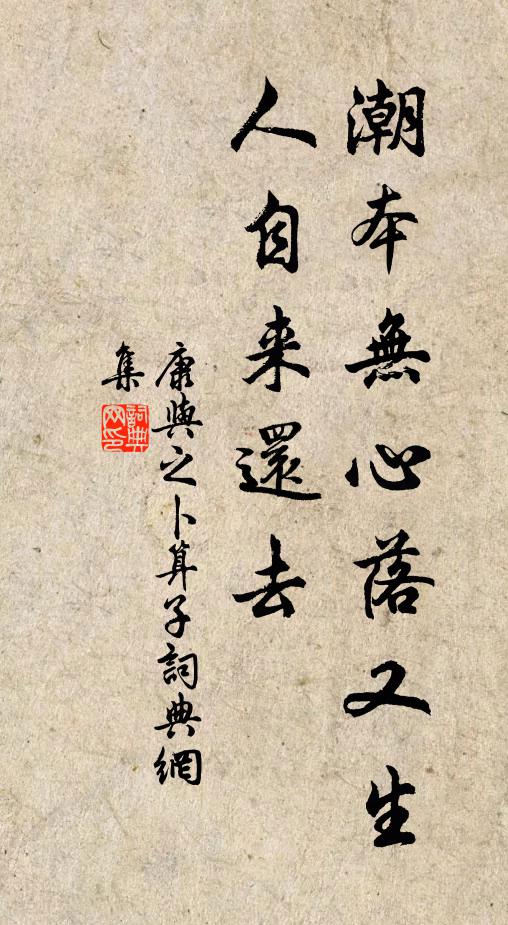 潮本無心落又生
人自来還去
康與之卜算子詞典網
集
詞典网印